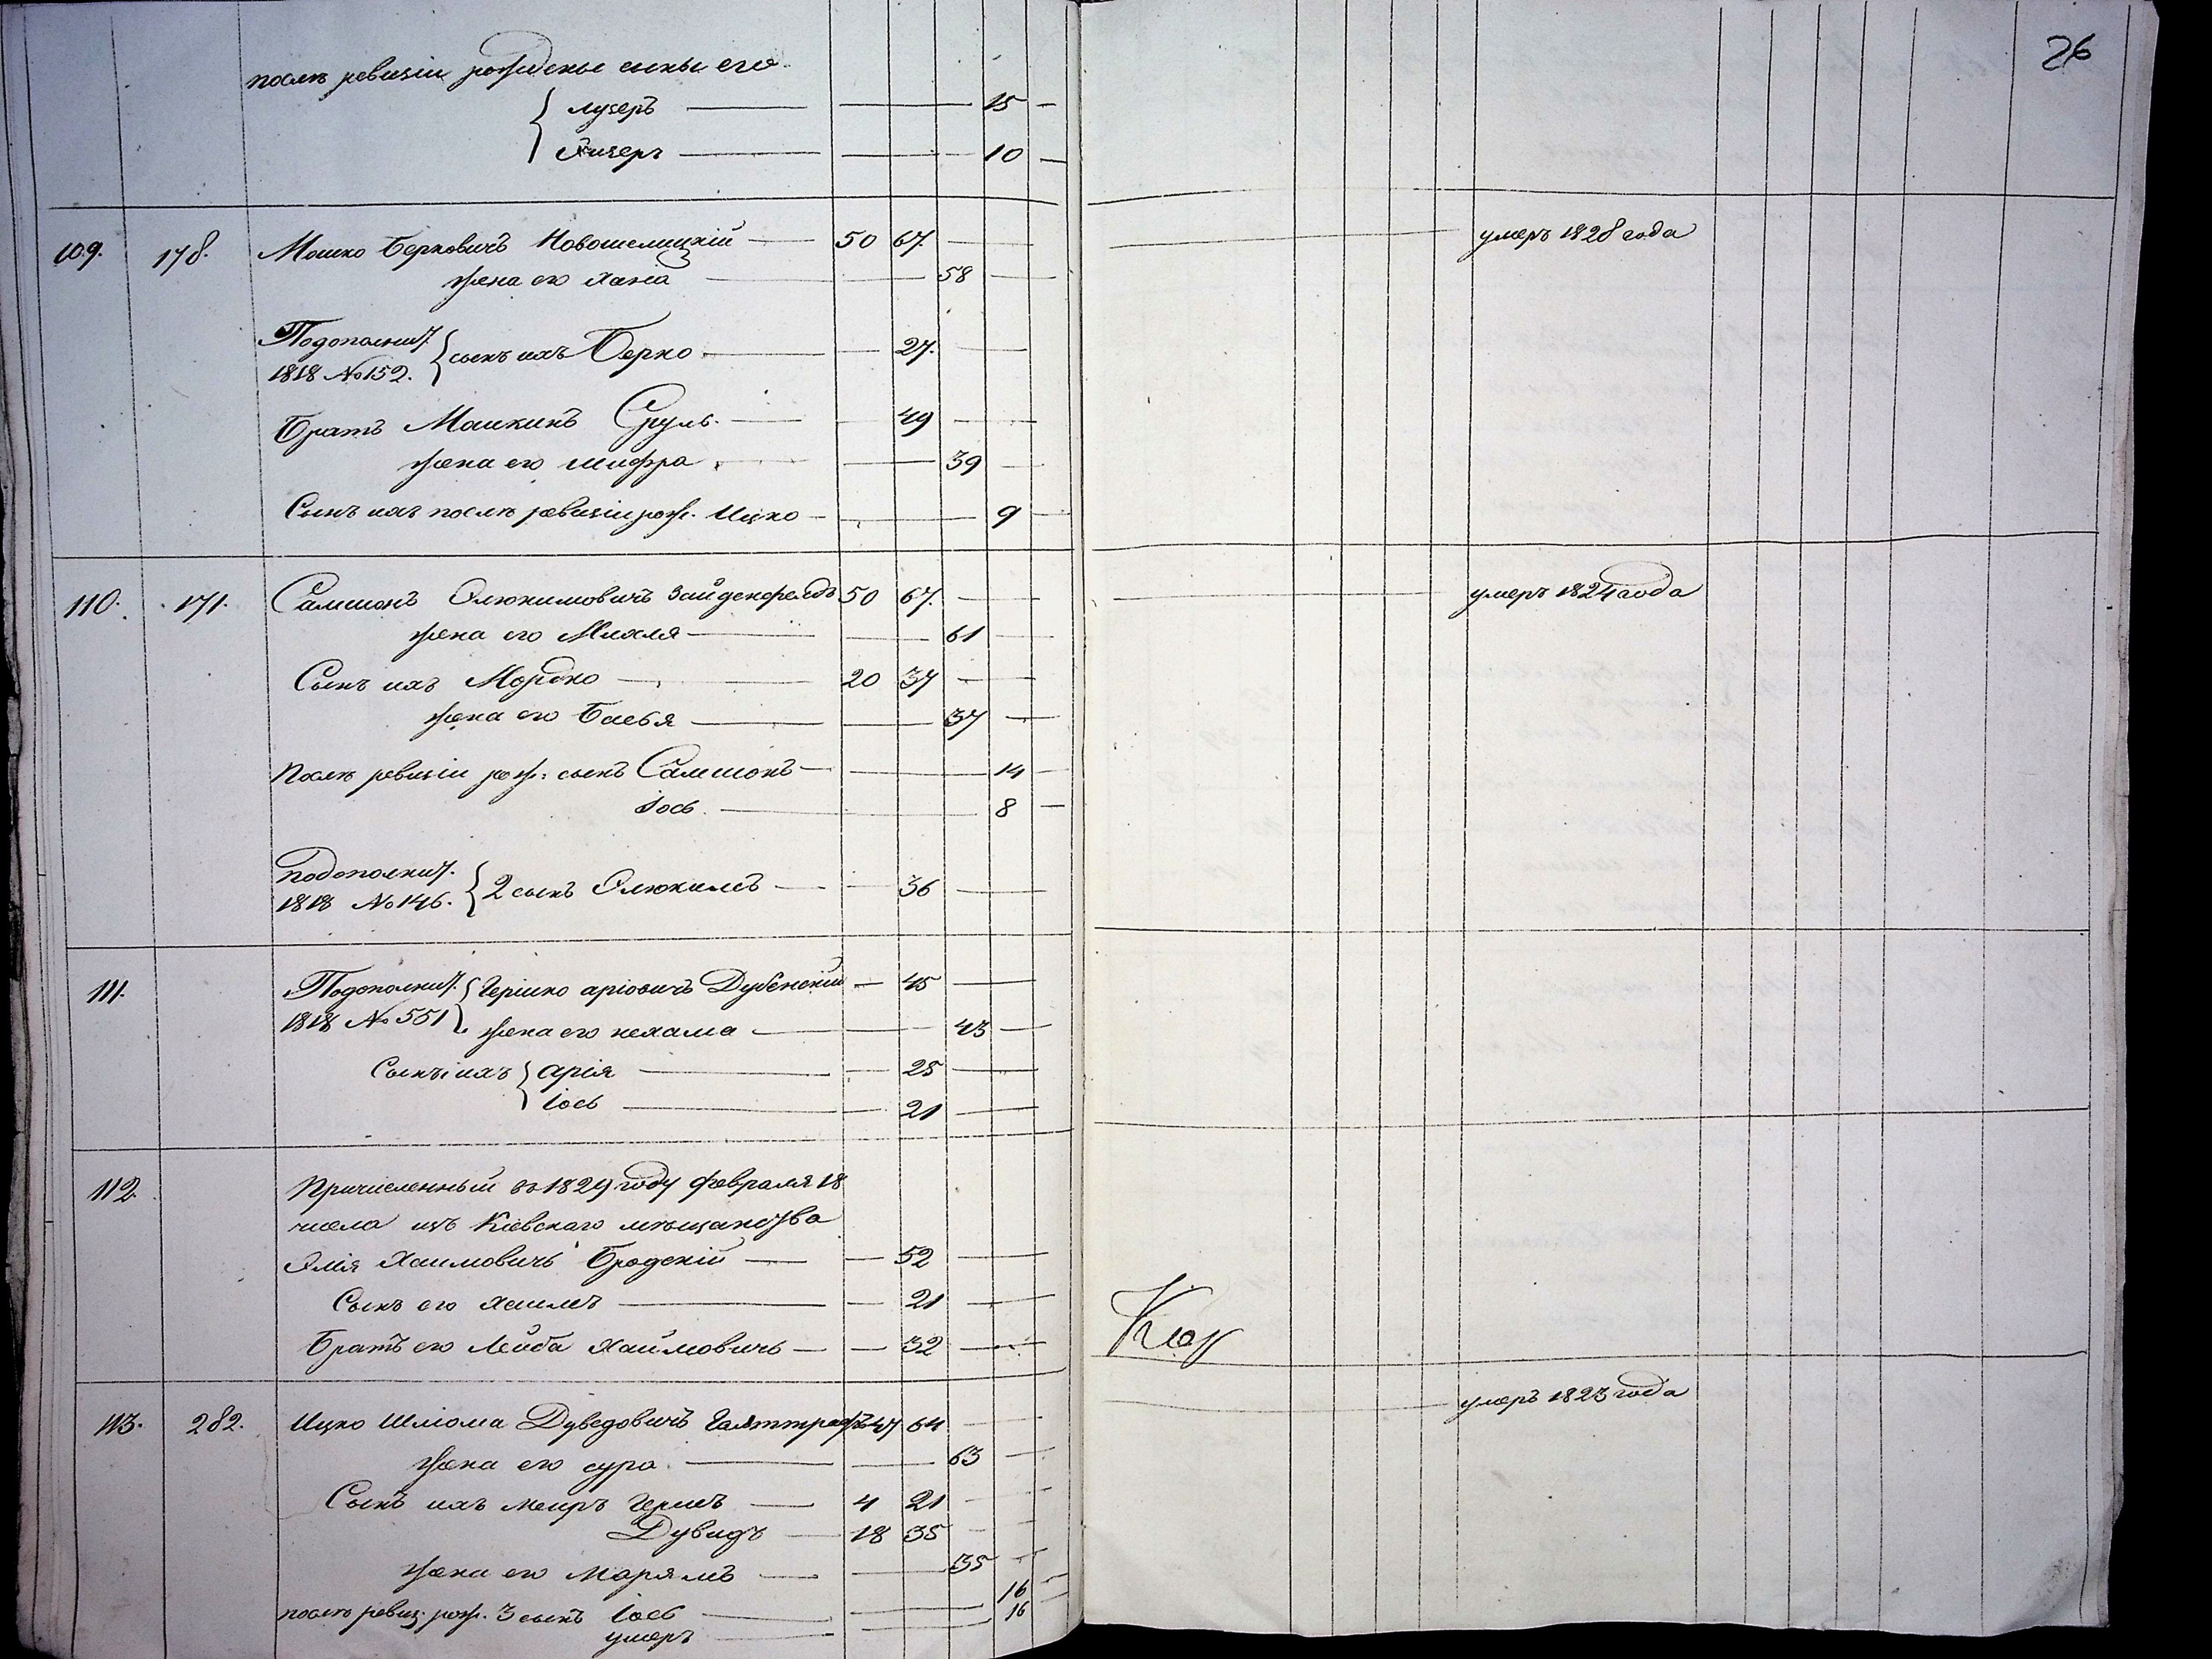 26
послѣ ревизіи рожденые сыны его.
лузеръ — 15 —
— 10 —
109. 178. Мошко Берковичъ Новошелицкій — 50 67. — умеръ 1828 года
жена его хана — 58 —
Подополнит. 1818 №152. { сынъ ихъ Берко — 27. —
Братъ Мошкинъ Сруль. — 49 —
жена его шифра — 39 —
Сынъ ихъ послѣ ревизіи рож. Ицко — 9 —
110. 171. Самсонъ Элюкимовичъ Зайденфелдъ 50 67. — умеръ 1824 года
жена его — 61 —
Сынъ ихъ Мордко — 20 37 —
жена его Басья — 37 —
Послѣ ревизіи рож: сынъ Самсонъ — 14 —
Іось. — 8 —
Подополнит. 1818 №146. { 2 сынъ Элюкимъ — 36 —
111. Подополнит. 1818 №551 { Гершко аріовичъ Дубенскій — 45 —
жена его нехама — 43 —
Сыны ихъ { арія — 25 —
Іось — 21 —
112. Причисленный въ 1829 году февраля 18
числа изъ Кіевскаго мѣщанства
Элія Хаимовичъ Бродскій — 52 —
Сынъ его хаимъ — 21 —
Братъ его Лейба Хаимовичъ — 32 —
113. 282. Ицко Шліома Дуведовичъ 47 64 — умеръ 1823 года
жена его сура. — 63 —
Сынъ ихъ меиръ гершъ — 4 21 —
Дувидъ — 18 35 —
жена его Марямъ — 35 —
послѣ ревиз: рож. 3 сынъ Іось — 16 —
умеръ — 16